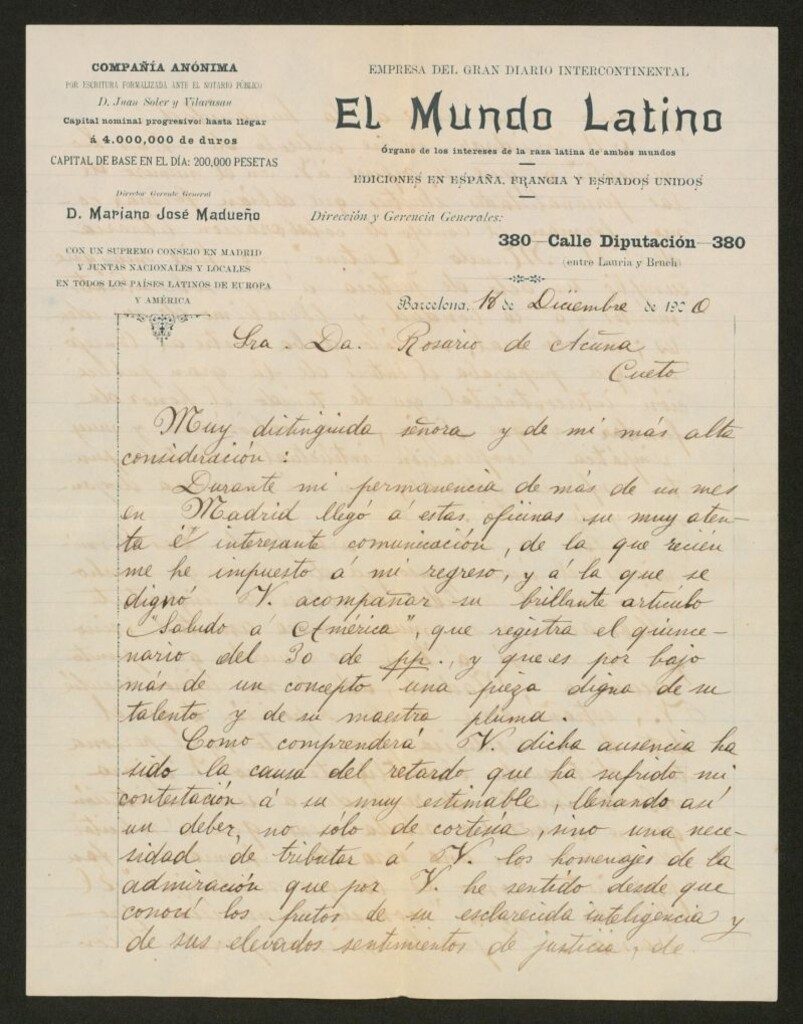 COMPAÑÍA ANÓNIMA
POR ESCRITURA FORMALIZADA ANTE EL NOTARIO PÚBLICO
D. Juan Soler y Vilarasau
Capital nominal progresivo: hasta llegar
á 4.000,000 de duros
CAPITAL DE BASE EN EL DÍA: 200,000 PESETAS
Director Gerente General
D. Mariano José Madueño
CON UN SUPREMO CONSEJO EN MADRID
Y JUNTAS NACIONALES Y LOCALES
EN TODOS LOS PAÍSES LATINOS DE EUROPA
Y AMÉRICA
EMPRESA DEL GRAN DIARIO INTERCONTINENTAL
El Mundo Latino
Órgano de los intereses de la raza latina de ambos mundos
EDICIONES EN ESPAÑA, FRANCIA Y ESTADOS UNIDOS
Dirección y Gerencia Generales:
380—Calle Diputación—380
(entre Lauria y Bruch)
Barcelona, 18 de Diciembre de 1900
Sra. Da. Rosario de Acuña
Cueto
Muy distinguida señora y de mi más alta
consideración:
Durante mi permanencia de más de un mes
en Madrid llegó á estas oficinas su muy aten-
ta é interesante comunicación, de la que recién
me he impuesto á mi regreso, y á la que se
dignó V. acompañar su brillante artículo
"Saludo á América", que registra el quince-
nario del 30 de pp., y que es por bajo
más de un concepto una pieza digna de su
talento y de su maestra pluma.
Como comprenderá V. dicha ausencia ha
sido la causa del retardo que ha sufrido mi
contestación á su muy estimable, llenando así
un deber, no sólo de cortesía, sino una nece-
sidad de tributar á V. los homenajes de la
admiración que por V. he sentido desde que
conocí los frutos de su esclarecida inteligencia y
de sus elevados sentimientos de justicia, de